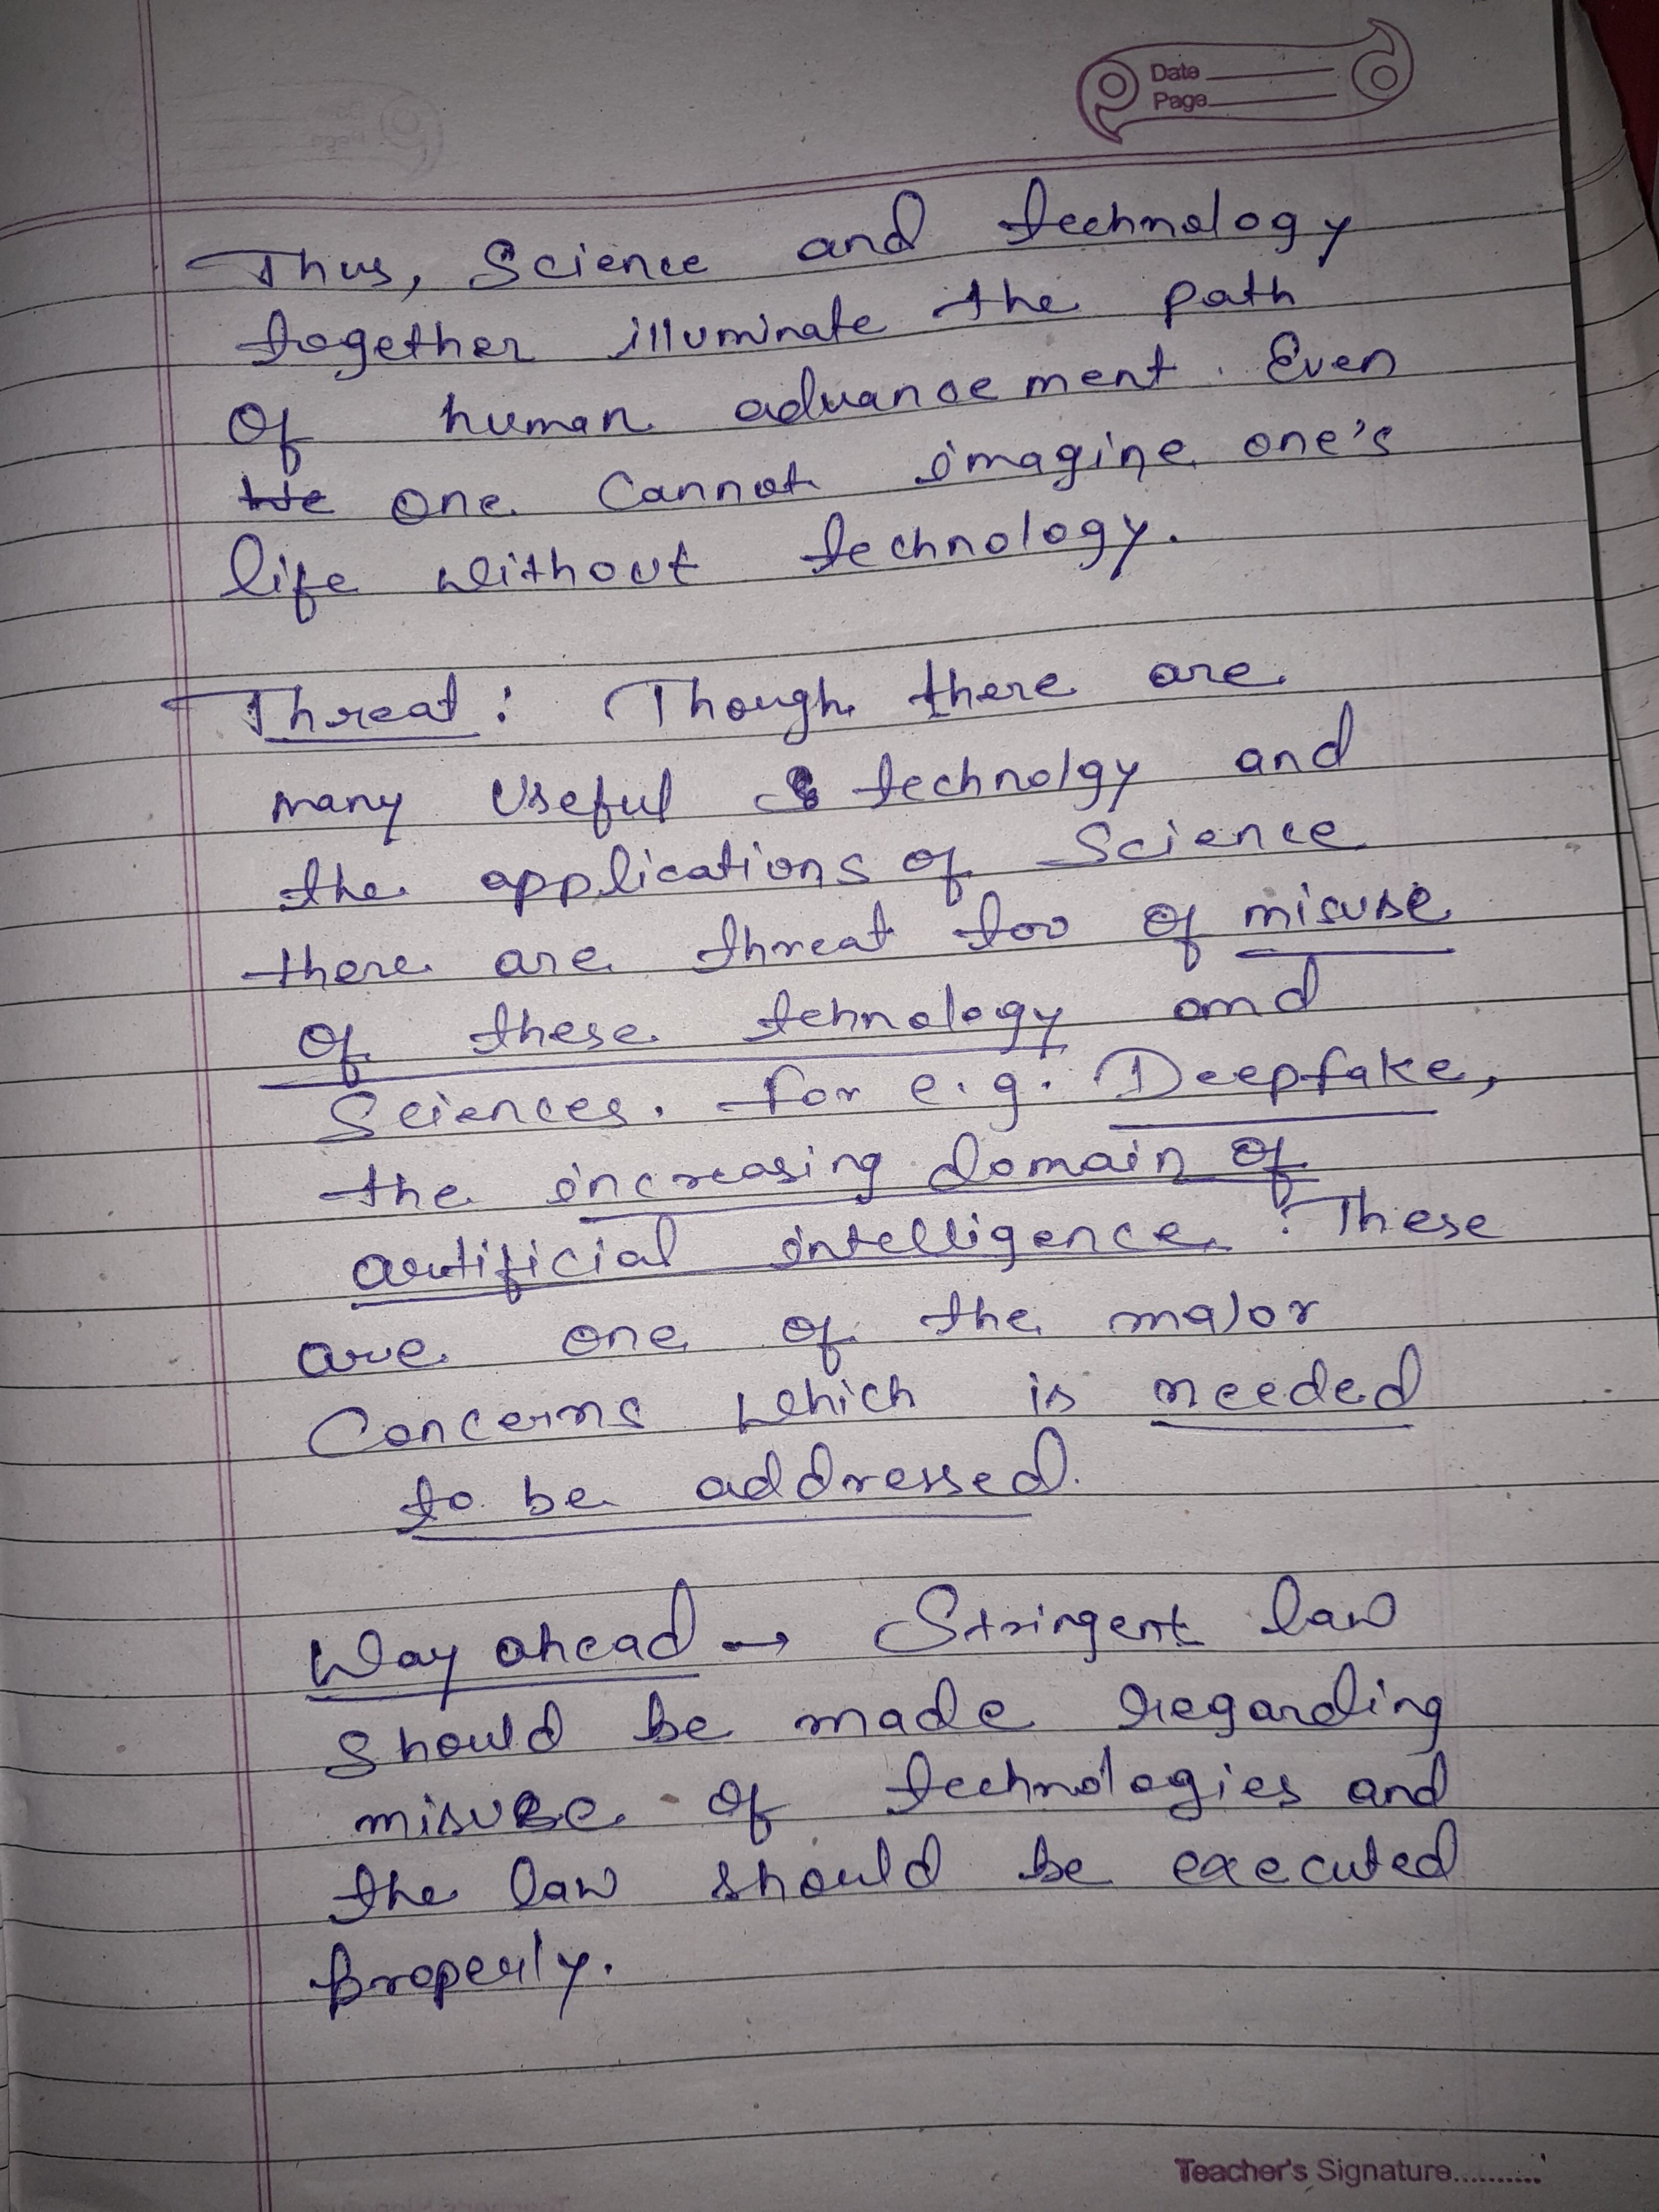 Date
Page
Thus, Science and technology
together illuminate the path
of human advancement. Even
We one cannot imagine one's
life without technology.
Threat: Though there are
many useful technolgy and
the applications of Science
there are threat too of misuse
of these tehnology and
Sciences. for e.g. Deepfake,
the increasing domain of
artificial intelligence. These
are one of the major
Concerns which is needed
to be addressed.
Way ahead → Stringent law
should be made regarding
misuse of technologies and
the law should be executed
properly.
Teacher's Signature..........